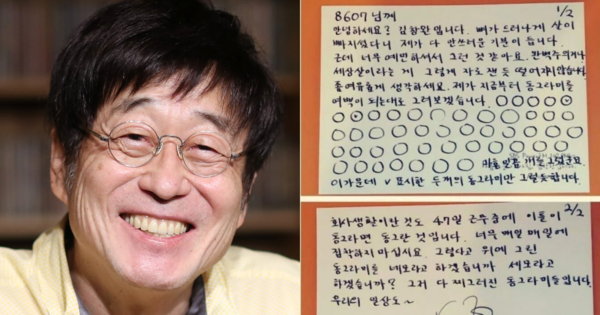 8607님께
1/2
안녕하세요? 김창완입니다. 뼈가 드러나게 살이
빠지셨다니 제가 다 안쓰러운 기분이 듭니다.
근데 너무 예민하셔서 그런 것 같아요. 완벽주의거나
세상살이라는 게 그렇게 자로 잰 듯 떨어지지 않습니다.
좀 여유롭게 생각하세요. 제가 지금부터 동그라미를
여백이 되는대로 그려보겠습니다.
마흔일곱 개를 그렸군요
이 가운데 v 표시한 두개의 동그라미만 그럴듯합니다.
2/2
회사생활이란 것도 47일 근무 중에 이틀이
동그라면 동그란 것입니다. 너무 매일매일에
집착하지 마십시오. 그렇다고 위에 그린
동그라미를 네모라고 하겠습니까 세모라고
하겠습니까? 그저 다 찌그러진 동그라미들입니다.
우리의 일상도~